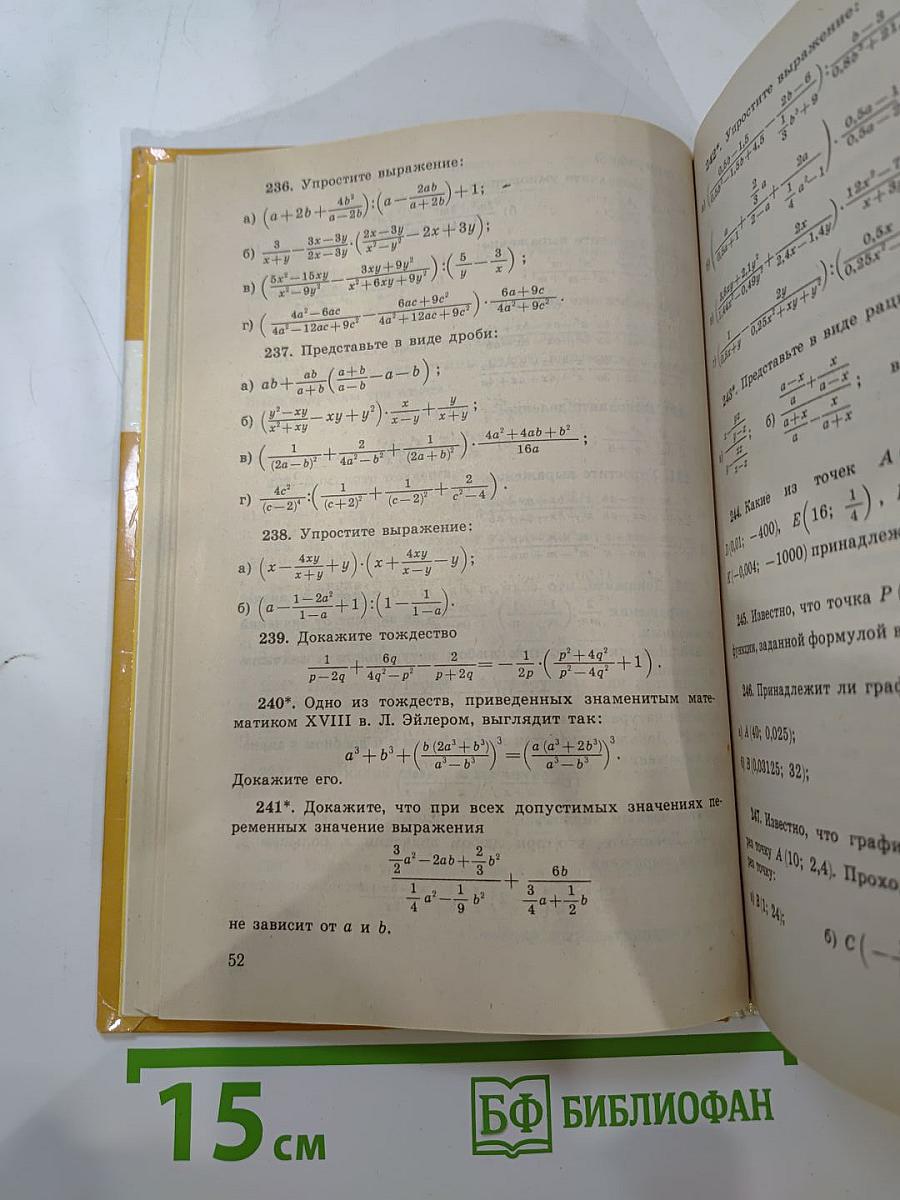 236. Упростите выражение:
а) (a+2b+\frac{4b²}{a−2b}):(a−\frac{2ab}{a+2b})+1;
б) \frac{3}{x+y}−\frac{3x−3y}{2x−3y}·(\frac{2x−3y}{x²−y²}−2x+3y);
в) (\frac{5x²−15xy}{x²−9y²}−\frac{3xy+9y²}{x²+6xy+9y²}):(\frac{5}{y}−\frac{3}{x});
г) (\frac{4a²−6ac}{4a²−12ac+9c²}−\frac{6ac+9c²}{4a²+12ac+9c²})·\frac{6a+9c}{4a²+9c²}.
237. Представьте в виде дроби:
а) ab+\frac{ab}{a+b}(\frac{a+b}{a−b}−a−b);
б) (\frac{y²−xy}{x²+xy}−xy+y²)·\frac{x}{x−y}+\frac{y}{x+y};
в) (\frac{1}{(2a−b)²}+\frac{2}{4a²−b²}+\frac{1}{(2a+b)²})·\frac{4a²+4ab+b²}{16a};
г) \frac{4c²}{(c−2)⁴}:(\frac{1}{(c+2)²}+\frac{1}{(c−2)²}+\frac{2}{c²−4}).
238. Упростите выражение:
а) (x−\frac{4xy}{x+y}+y)·(x+\frac{4xy}{x−y}−y);
б) (a−\frac{1−2a²}{1−a}+1):(1−\frac{1}{1−a}).
239. Докажите тождество
\frac{1}{p−2q}+\frac{6q}{4q²−p²}−\frac{2}{p+2q}=−\frac{1}{2p}·(\frac{p²+4q²}{p²−4q²}+1).
240*. Одно из тождеств, приведенных знаменитым мате-
матиком XVIII в. Л. Эйлером, выглядит так:
a³+b³+(\frac{b(2a³+b³)}{a³−b³})³=(\frac{a(a³+2b³)}{a³−b³})³.
Докажите его.
241*. Докажите, что при всех допустимых значениях пе-
ременных значение выражения
\frac{\frac{3}{2}a²−2ab+\frac{2}{3}b²}{\frac{1}{4}a²−\frac{1}{9}b²}+\frac{6b}{\frac{3}{4}a+\frac{1}{2}b}
не зависит от a и b.
52
242*. Упростите выражение:
243*. Представьте в виде
б) \frac{\frac{a−x}{a}+\frac{x}{a−x}}{\frac{a+x}{a}−\frac{x}{a+x}};
244. Какие из точек A
−400), E(16; \frac{1}{4}),
−0,004; −1000)
245. Известно, что точка P
заданной формулой
246. Принадлежит ли
а) A(40; 0,025);
б) B(0,03125; 32);
247. Известно, что
точку A(10; 2,4).
точку:
а) B(1; 24);
б) C(−
15 см
БФ БИБЛИОФАН